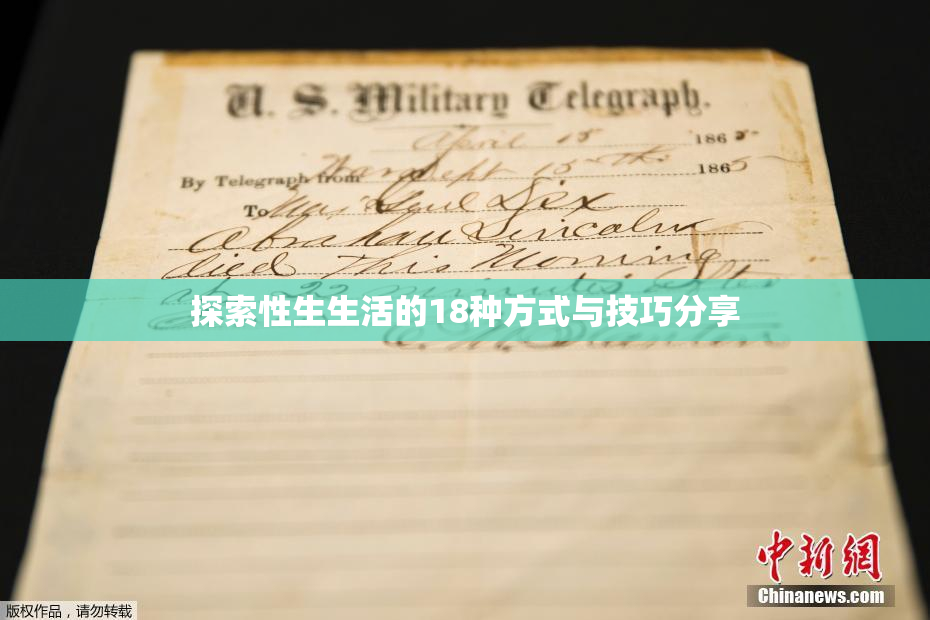 U. S. Military Telegraph.
April 15 1865
By Telegraph from War Dept 15th 1865
To Maj Genl Dix
Abraham Lincoln
died This Morning
at 22 minutes after
探索性生生活的18种方式与技巧分享
E. M. Stanton
中新网
Chinanews.com
版权作品，请勿转载